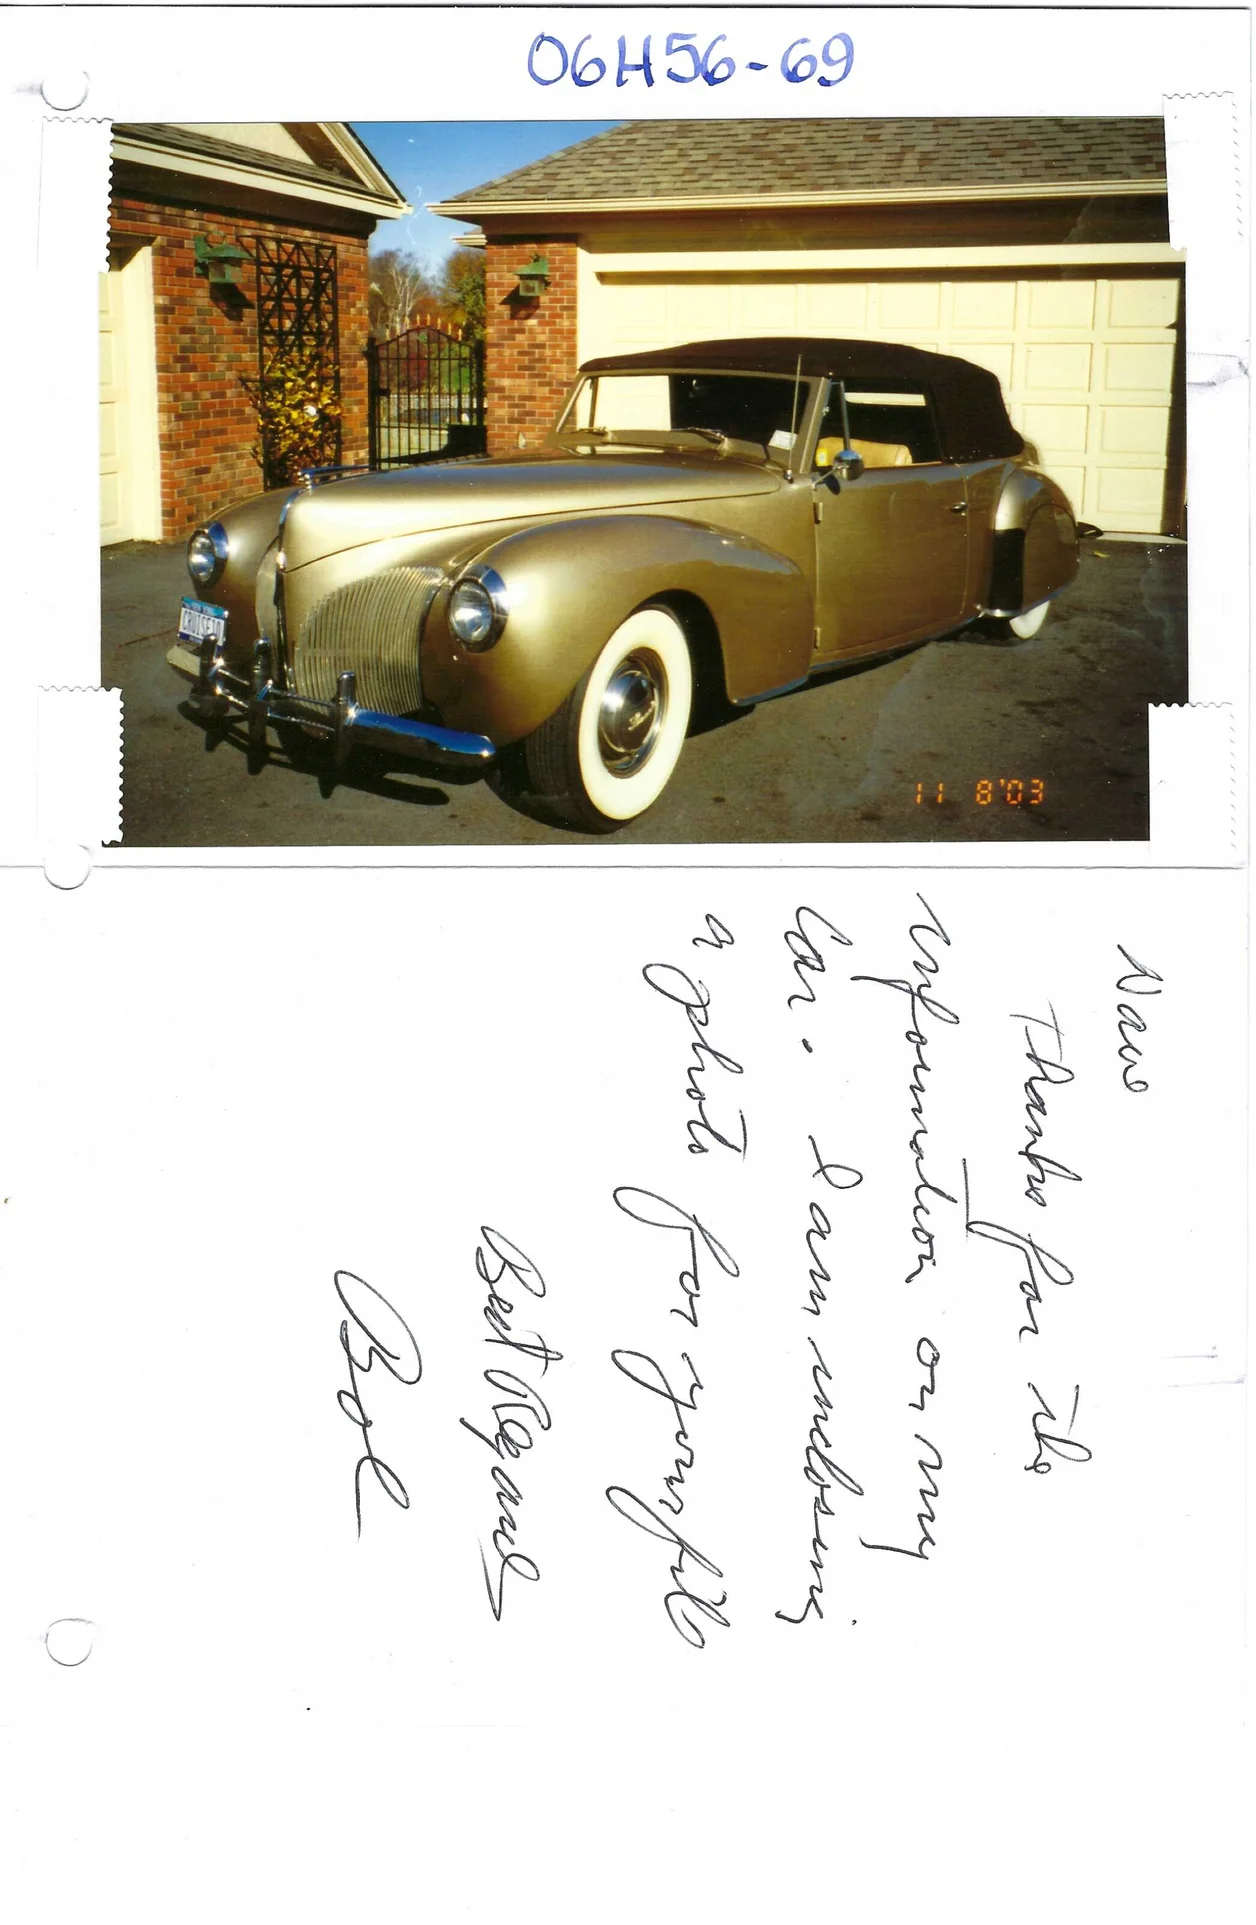 06H56-69
CRUISE10
11 8'03
Dave
Thanks for the
information on my
Car. I am enclosing
a photo for your file
Best Regards
Bob